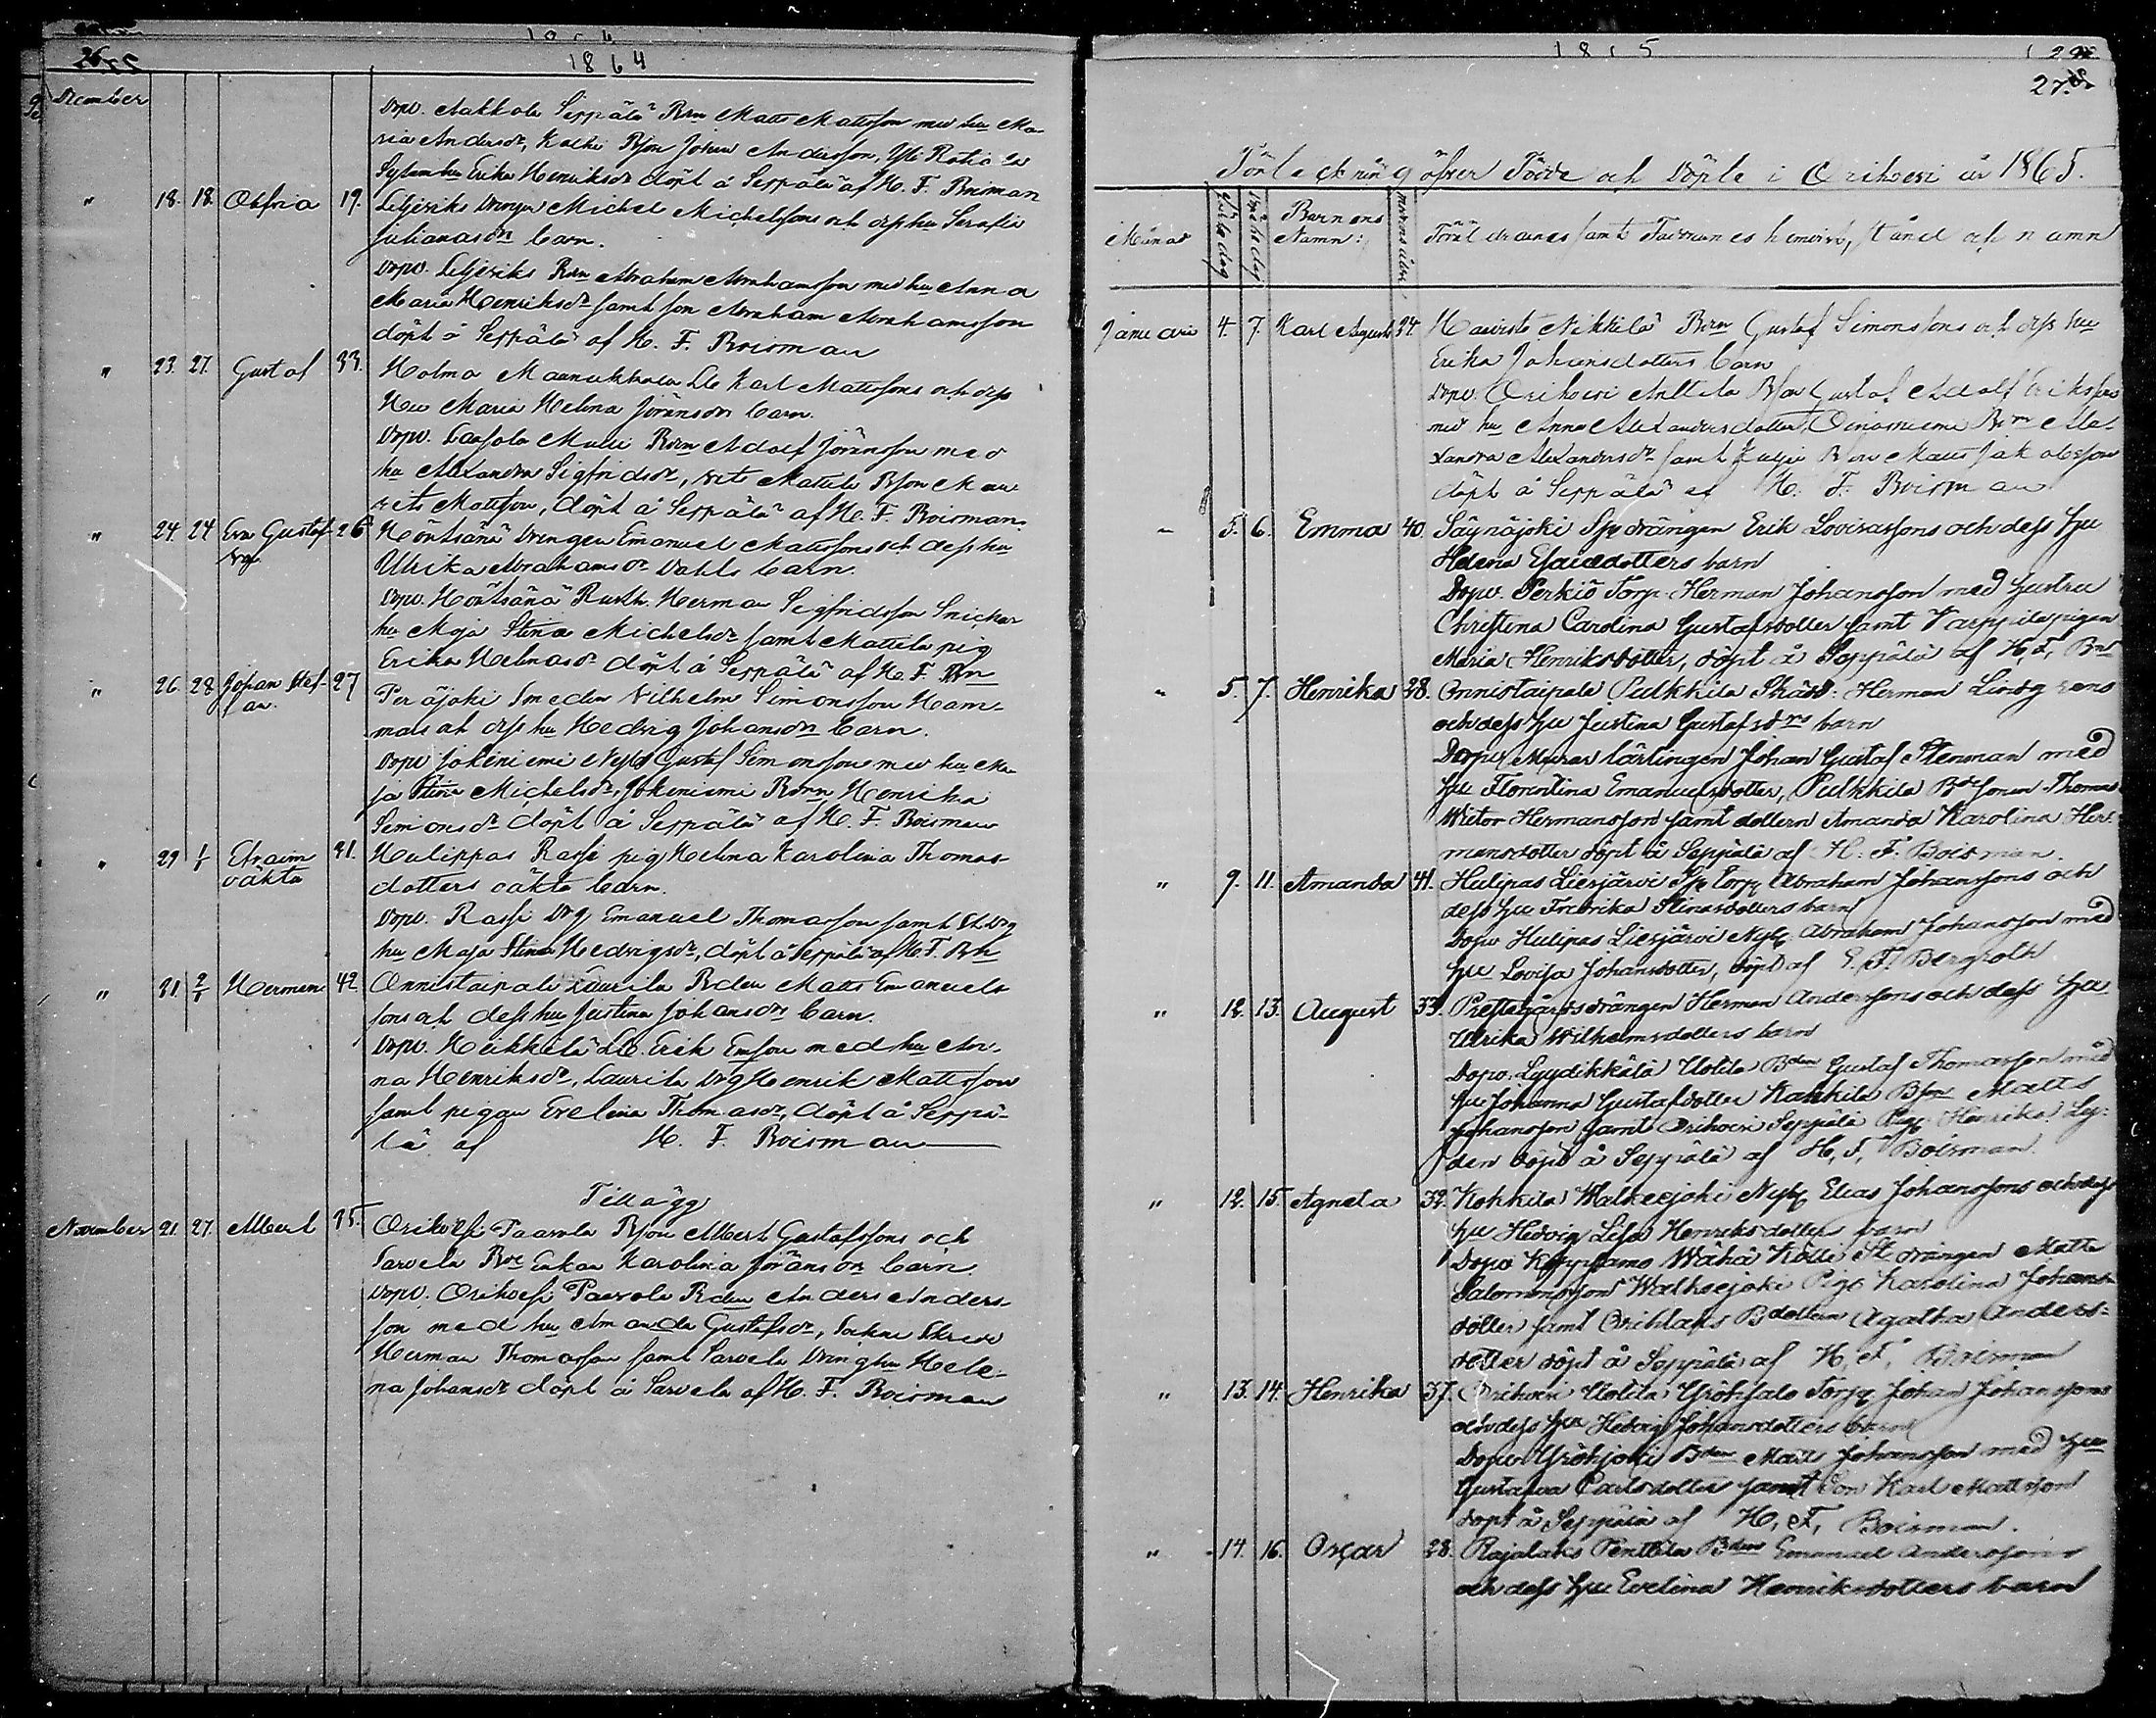 1864
26
December
Dopv. Akkola Seppälä Bdn Matts Mattsson med hu Ma-
ria Andersdr, Kolhi Bson Johan Andersson,
Erika Henriksdr döpt å Seppälä af H. F. Boisman
" 18. 18. 19. Liljeriks Drengen Michel Michelssons och dess hu Serafia
Julianasdrs barn.
Dopv. Liljeriks Bdn Abraham Abrahamsson med hu Anna
Maria Henriksdr samt son Abraham Abrahamsson
döpt å Seppälä af H. F. Boisman
" 23. 27. Gustaf 33. Holma Maanukkala Karl Mattssons och dess
Hu Maria Helena Jöransdrs barn.
Dopv. Bdn Adolf Jöransson med
hu Alexandra Sigfridsdr, Mattila Bson Mau-
rits Mattsson, döpt å Seppälä af H. F. Boisman.
" 24. 24 Eva Gustaf-
va 26 Höntsänä Drengen Emanuel Mattssons och dess hu
Ulrika Abrahamsdr Dahls barn.
Dopv. Höntsänä Rusth. Herman Sigfridsson Snickar
hu Maja Stina Michelsdr samt Mattila pig
Erika Helenasdr döpt å Seppälä af H. F. Bn
" 26. 28 Johan Stef-
an. 27 Peräjoki Smeden Vilhelm Simonsson Ham-
mas och dess hu Hedvig Johansdrs barn.
Dopv Jokiniemi Nyb Gustaf Simonsson med hu Ma-
ja Stina Michelsdr, Jokiniemi Henrika
Simonsdr döpt å Seppälä af H. F. Boisman
" 29 1/1 Efraim
oäkta 31. Hulippas Rassi pig Helena Karolina Thomas-
dotters oäkta barn.
Dopv. Rassi Drg Emanuel Thomasson samt
hu Maja Stina Hedvigsdr, döpt å Seppälä af H. F. Bn
" 31. 2/1 Herman 42. Onnistaipale Laurila Bden Matts Emanuels-
sons och dess hu Justina Johansdrs barn.
Dopv. Heikkilä Erik Emsson med hu An-
na Henriksdr, Laurila Drg Henrik Mattsson
samt pigan Evelina Thomasdr, döpt å Seppä-
lä af H. F. Boisman
Tillägg
November 21. 27. Albert 25. Orihvesi Paavola Bson Albert Gustafssons och
Sarvela Enkan Karolina Jöransdrs barn.
Dopv. Orihvesi Paavola Bden Anders Anders-
son med hu Amanda Gustafsdr, Socken Skred
Herman Thomasson samt Sarvela Dreng hu Hele-
na Johansdr döpt å Sarvela af H. F. Boisman
1865
27.
Förteckning öfver Födde och Döpte i Orihvesi år 1865.
Månad
Födelsedag
Döpelsedag
Barnens
Namn:
Modrens ålder
Föräldrarnes samt Faddrarnes hemvist, stånd och namn
Januari 4. 7. Karl August 24. Haavisto Nikkilä Bdn Gustaf Simonssons och dess hu
Erika Johansdotters barn
Dopv. Orihvesi Anttila Bson Gustaf Adolf Eriksson
med hu Anna Alexandersdotter, Oinasniemi Ale-
xandra Alexandersdr samt Matts Jakobsson
döpt å Seppälä af H. F. Boisman
" 5. 6. Emma 40. Säynäjoki Spdrängen Erik Lovisassons och dess hu
Helena Esaiedotters barn
Dopv. Perkiö Torp. Herman Johansson med hustru
Christina Carolina Gustafsdotter samt Karppila pigan
Maria Henriksdotter, döpt å Seppälä af H. F. Bn
" 5. 7. Henrika 28. Onnistaipale Pulkkila Skräd. Herman Lindgrens
och dess hu Justina Gustafsdrs barn
Dopv. Murarlärlingen Johan Gustaf Stenman med
hu Florentina Emanuelsdotter, Pulkkila Bdsonen Thomas
Wictor Hermansson samt dottern Amanda Karolina Her-
mansdotter döpt å Seppälä af H. F. Boisman.
" 9. 11. Amanda 41. Hulipas Liesjärvi Sp Torp. Abraham Johanssons och
dess hu Fredrika Stinasdotters barn
Dopv Hulipas Liesjärvi Nyb. Abraham Johansson med
hu Lovisa Johansdotter, döpt af E. F. Bergroth
" 12. 13. August 33. Prestgårdsdrängen Herman Anderssons och dess hu
Ulrika Wilhelmsdotters barn
Dopv. Lyydikkälä Uotila Bden Gustaf Thomasson med
hu Johanna Gustafsdotter Kakkila Bson Matts
Johansson samt Orihvesi Seppälä Pig. Henrika Ly-
den döpt å Seppälä af H. F. Boisman.
" 12. 15. Agneta 32. Kokkila Walkeejoki Nyb. Elias Johanssons och dess
hu Hedvig Lisa Henriksdotters barn
Dopv Koppsamo Wähä Kölli St. drängen Matts
Salomonsson Walkeejoki Pig. Karolina Johans-
dotter samt Orihlaks Bdottern Agatha Anders-
dotter döpt å Seppälä af H. F. Boisman
" 13. 14. Henrika 37. Orihvesi Uotila Torp. Johan Johanssons
och dess hu Hedvig Johansdotters barn
Dopv Yröhjoki Bden Matts Johansson med hu
Gustafva Carlsdotter samt son Karl Mattsson
döpt å Seppälä af H. F. Boisman.
" 14. 16. Oscar 28. Rajalaks Penttila Bden Emanuel Anderssons
och dess hu Evelina Henriksdotters barn